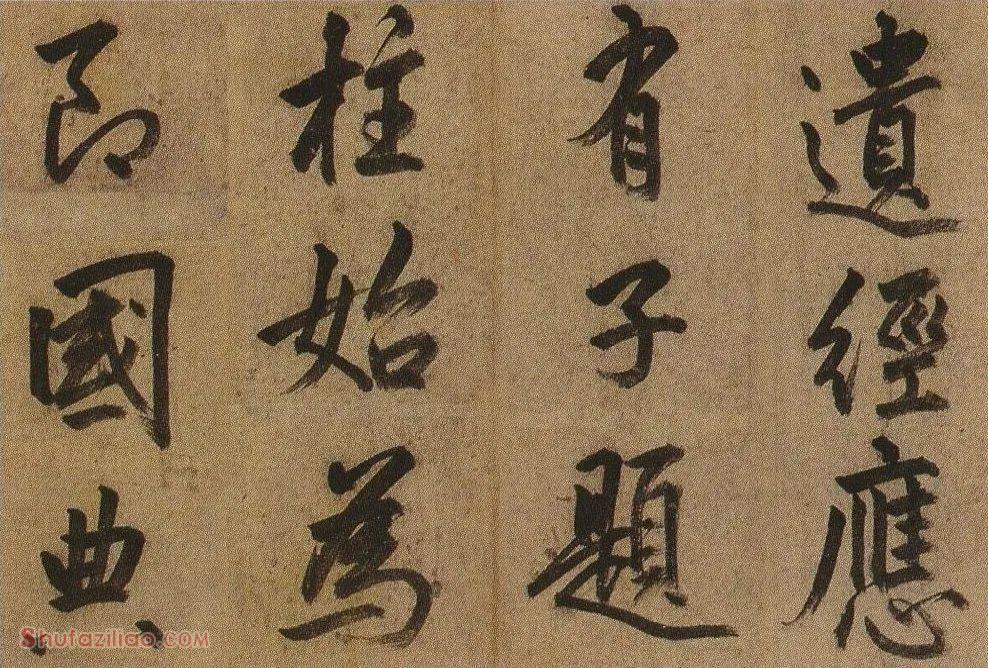 遺經應
有子題
柱始為
郎國典
Shufaziliao.COM